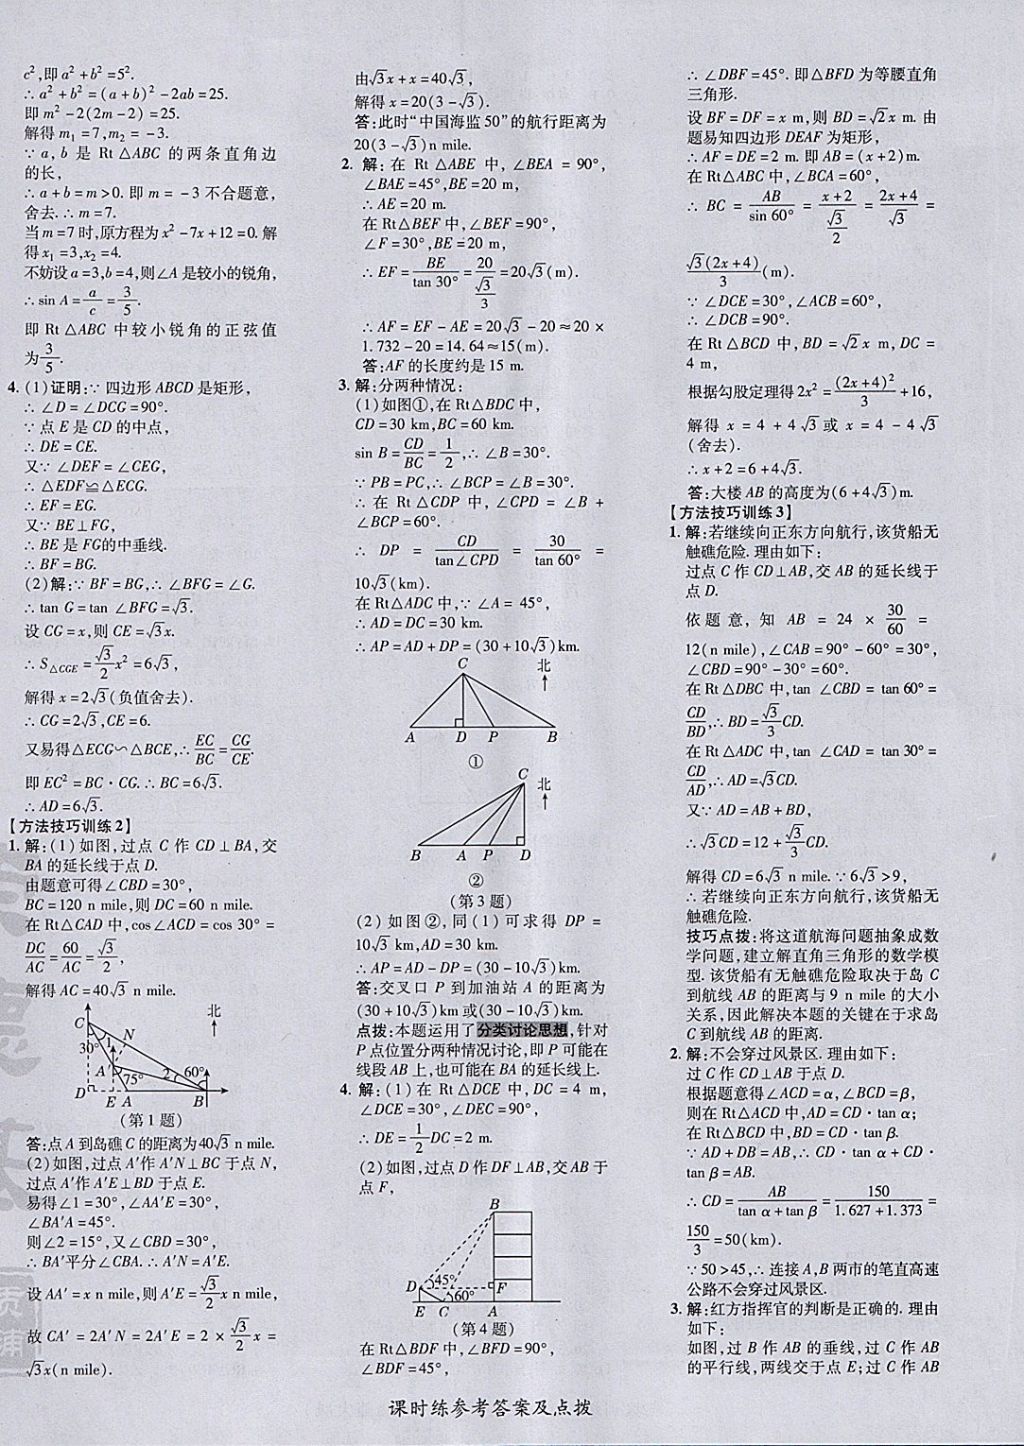 c²,即a²+b²=5².
∴a²+b²=(a+b)²-2ab=25.
即m²-2(2m-2)=25.
解得m₁=7,m₂=-3.
∵a,b是Rt△ABC的两条直角边
的长,
∴a+b=m>0.即m=-3不合题意,
舍去.∴m=7.
当m=7时,原方程为x²-7x+12=0.解
得x₁=3,x₂=4.
不妨设a=3,b=4,则∠A是较小的锐角,
∴sin A=a/c=3/5.
即Rt△ABC中较小锐角的正弦值
为3/5.
4.(1)证明:∵四边形ABCD是矩形,
∴∠D=∠DCG=90°.
∵点E是CD的中点,
∴DE=CE.
又∵∠DEF=∠CEG,
∴△EDF≌△ECG.
∴EF=EG.
又∵BE⊥FG,
∴BE是FG的中垂线.
∴BF=BG.
(2)解:∵BF=BG,∴∠BFG=∠G.
∴tan G=tan ∠BFG=√3.
设CG=x,则CE=√3x.
∴S△CGE=√3/2x²=6√3,
解得x=2√3(负值舍去).
∴CG=2√3,CE=6.
又易得△ECG∽△BCE,∴EC/BC=CG/CE.
即EC²=BC·CG.∴BC=6√3.
∴AD=6√3.
【方法技巧训练2】
1.解:(1)如图,过点C作CD⊥BA,交
BA的延长线于点D.
由题意可得∠CBD=30°,
BC=120 n mile,则DC=60 n mile.
在Rt△CAD中,cos∠ACD=cos 30°=
DC/AC=60/AC=√3/2,
解得AC=40√3 n mile.
北
C
N
30°
1
A′
75°
2
60°
D
E
A
B
(第1题)
答:点A到岛礁C的距离为40√3 n mile.
(2)如图,过点A′作A′N⊥BC于点N,
过点A′作A′E⊥BD于点E.
易得∠1=30°,∠AA′E=30°,
∠BA′A=45°.
则∠2=15°,又∠CBD=30°,
∴BA′平分∠CBA.∴A′N=A′E.
设AA′=x n mile,则A′E=√3/2x n mile,
故CA′=2A′N=2A′E=2×√3/2x=
√3x(n mile).
由√3x+x=40√3,
解得x=20(3-√3).
答:此时“中国海监50”的航行距离为
20(3-√3)n mile.
2.解:在Rt△ABE中,∠BEA=90°,
∠BAE=45°,BE=20 m,
∴AE=20 m.
在Rt△BEF中,∠BEF=90°,
∠F=30°,BE=20 m,
∴EF=BE/tan 30°=20/(√3/3)=20√3(m).
∴AF=EF-AE=20√3-20≈20×
1.732-20=14.64≈15(m).
答:AF的长度约是15 m.
3.解:分两种情况:
(1)如图①,在Rt△BDC中,
CD=30 km,BC=60 km.
sin B=CD/BC=1/2,∴∠B=30°.
∵PB=PC,∴∠BCP=∠B=30°.
∴在Rt△CDP中,∠CPD=∠B+
∠BCP=60°.
∴DP=CD/tan∠CPD=30/tan 60°=
10√3(km).
在Rt△ADC中,∵∠A=45°,
∴AD=DC=30 km.
∴AP=AD+DP=(30+10√3)km.
C
北
A
D
P
B
①
C
北
B
A
P
D
②
(第3题)
(2)如图②,同(1)可求得DP=
10√3 km,AD=30 km.
∴AP=AD-DP=(30-10√3)km.
答:交叉口P到加油站A的距离为
(30+10√3)km或(30-10√3)km.
点拨:本题运用了分类讨论思想,针对
P点位置分两种情况讨论,即P可能在
线段AB上,也可能在BA的延长线上.
4.解:(1)在Rt△DCE中,DC=4 m,
∠DCE=30°,∠DEC=90°,
∴DE=1/2DC=2 m.
(2)如图,过点D作DF⊥AB,交AB于
点F,
B
D
45°
F
60°
E
C
A
(第4题)
在Rt△BDF中,∠BFD=90°,
∠BDF=45°,
∴∠DBF=45°.即△BFD为等腰直角
三角形.
设BF=DF=x m,则BD=√2x m.由
题易知四边形DEAF为矩形,
∴AF=DE=2 m.即AB=(x+2)m.
在Rt△ABC中,∠BCA=60°,
∴BC=AB/sin 60°=(x+2)/(√3/2)=(2x+4)/√3=
√3(2x+4)/3(m).
∵∠DCE=30°,∠ACB=60°,
∴∠DCB=90°.
在Rt△BCD中,BD=√2x m,DC=
4 m,
根据勾股定理得2x²=(2x+4)²/3+16,
解得x=4+4√3或x=4-4√3
(舍去).
∴x+2=6+4√3.
答:大楼AB的高度为(6+4√3)m.
【方法技巧训练3】
1.解:若继续向正东方向航行,该货船无
触礁危险.理由如下:
过点C作CD⊥AB,交AB的延长线于
点D.
依题意,知AB=24×30/60=
12(n mile),∠CAB=90°-60°=30°,
∠CBD=90°-30°=60°.
在Rt△DBC中,tan ∠CBD=tan 60°=
CD/BD,∴BD=√3/3CD.
在Rt△ADC中,tan ∠CAD=tan 30°=
CD/AD,∴AD=√3CD.
又∵AD=AB+BD,
∴√3CD=12+√3/3CD.
解得CD=6√3 n mile.∵6√3>9,
∴若继续向正东方向航行,该货船无
触礁危险.
技巧点拨:将这道航海问题抽象成数
学问题,建立解直角三角形的数学模
型.该货船有无触礁危险取决于岛C
到航线AB的距离与9 n mile的大小
关系,因此解决本题的关键在于求岛
C到航线AB的距离.
2.解:不会穿过风景区.理由如下:
过C作CD⊥AB于点D.
根据题意得∠ACD=α,∠BCD=β,
则在Rt△ACD中,AD=CD·tan α;
在Rt△BCD中,BD=CD·tan β.
∵AD+DB=AB,∴CD·tan α+CD·
tan β=AB.
∴CD=AB/(tan α+tan β)=150/(1.627+1.373)=
150/3=50(km).
∵50>45,∴连接A,B两市的笔直高速
公路不会穿过风景区.
3.解:红方指挥官的判断是正确的.理由
如下:
如图,过B作AB的垂线,过C作AB
的平行线,两线交于点E;过C作AB
课时练参考答案及点拨